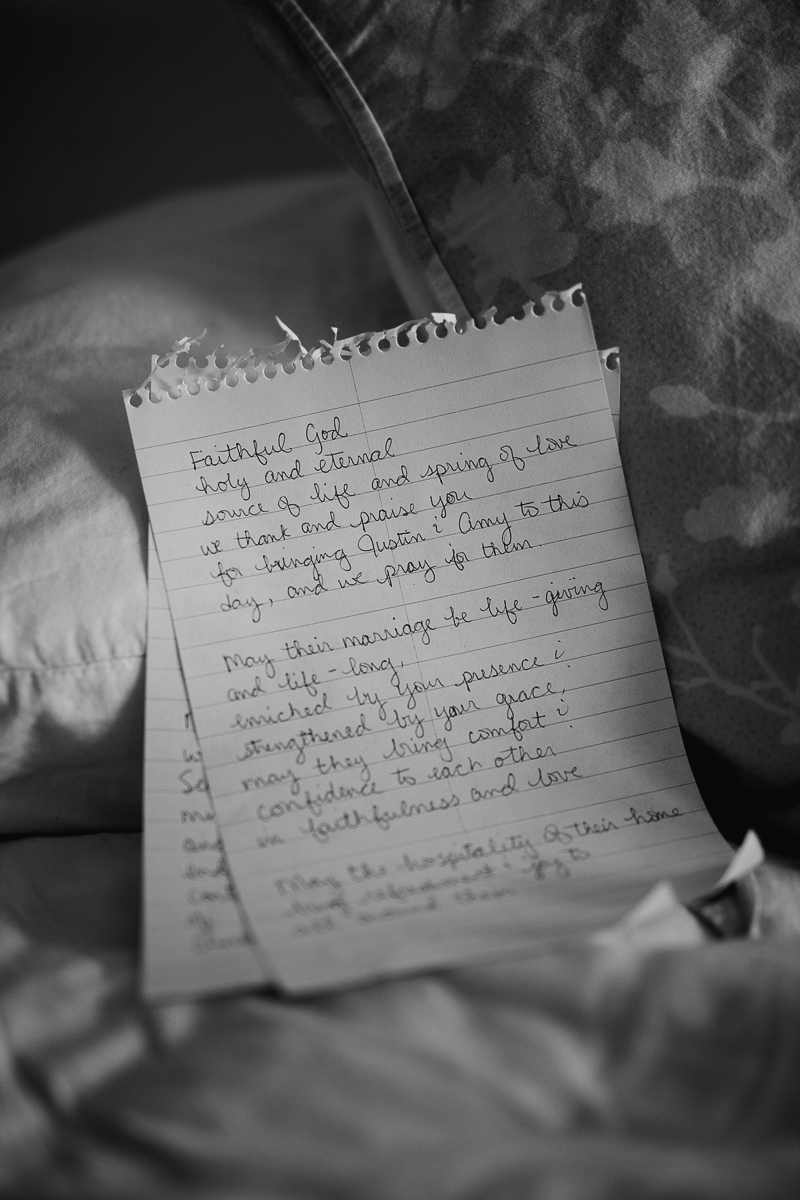 Faithful God
holy and eternal
source of life and spring of love
we thank and praise you
for bringing Justin & Amy to this
day, and we pray for them.
May their marriage be life-giving
and life-long,
enriched by your presence &
strengthened by your grace,
may they bring comfort &
confidence to each other
in faithfulness and love
May the hospitality of their home
bring refreshment & joy to
all around them